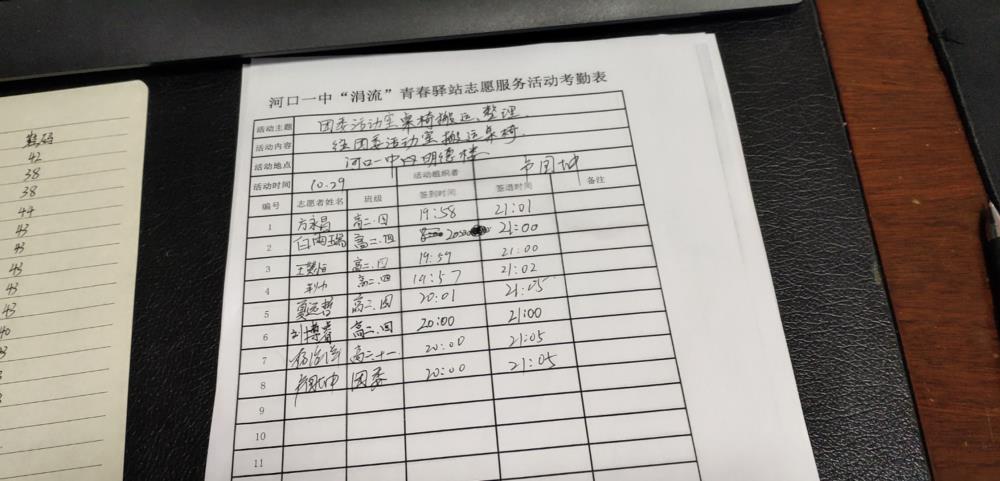 鞋码
42
38
38
44
43
43
43
43
43
40
河口一中“涓流”青春驿站志愿服务活动考勤表
活动主题 团委活动室桌椅搬运、整理
活动内容 给团委活动室搬运桌椅
活动地点 河口一中 明德楼
活动时间 10.29 活动组织者
编号 志愿者姓名 班级 签到时间 签退时间 备注
1 方永昌 高二.四 19:58 21:01
2 白雨瑞 高二.四 20:00 21:00
3 高二.四 19:59 21:00
4 高二.四 19:57 21:02
5 夏远哲 高二.四 20:01 21:05
6 刘博睿 高二.四 20:00 21:00
7 高二十一 20:00 21:05
8 团委 20:00 21:05
9
10
11